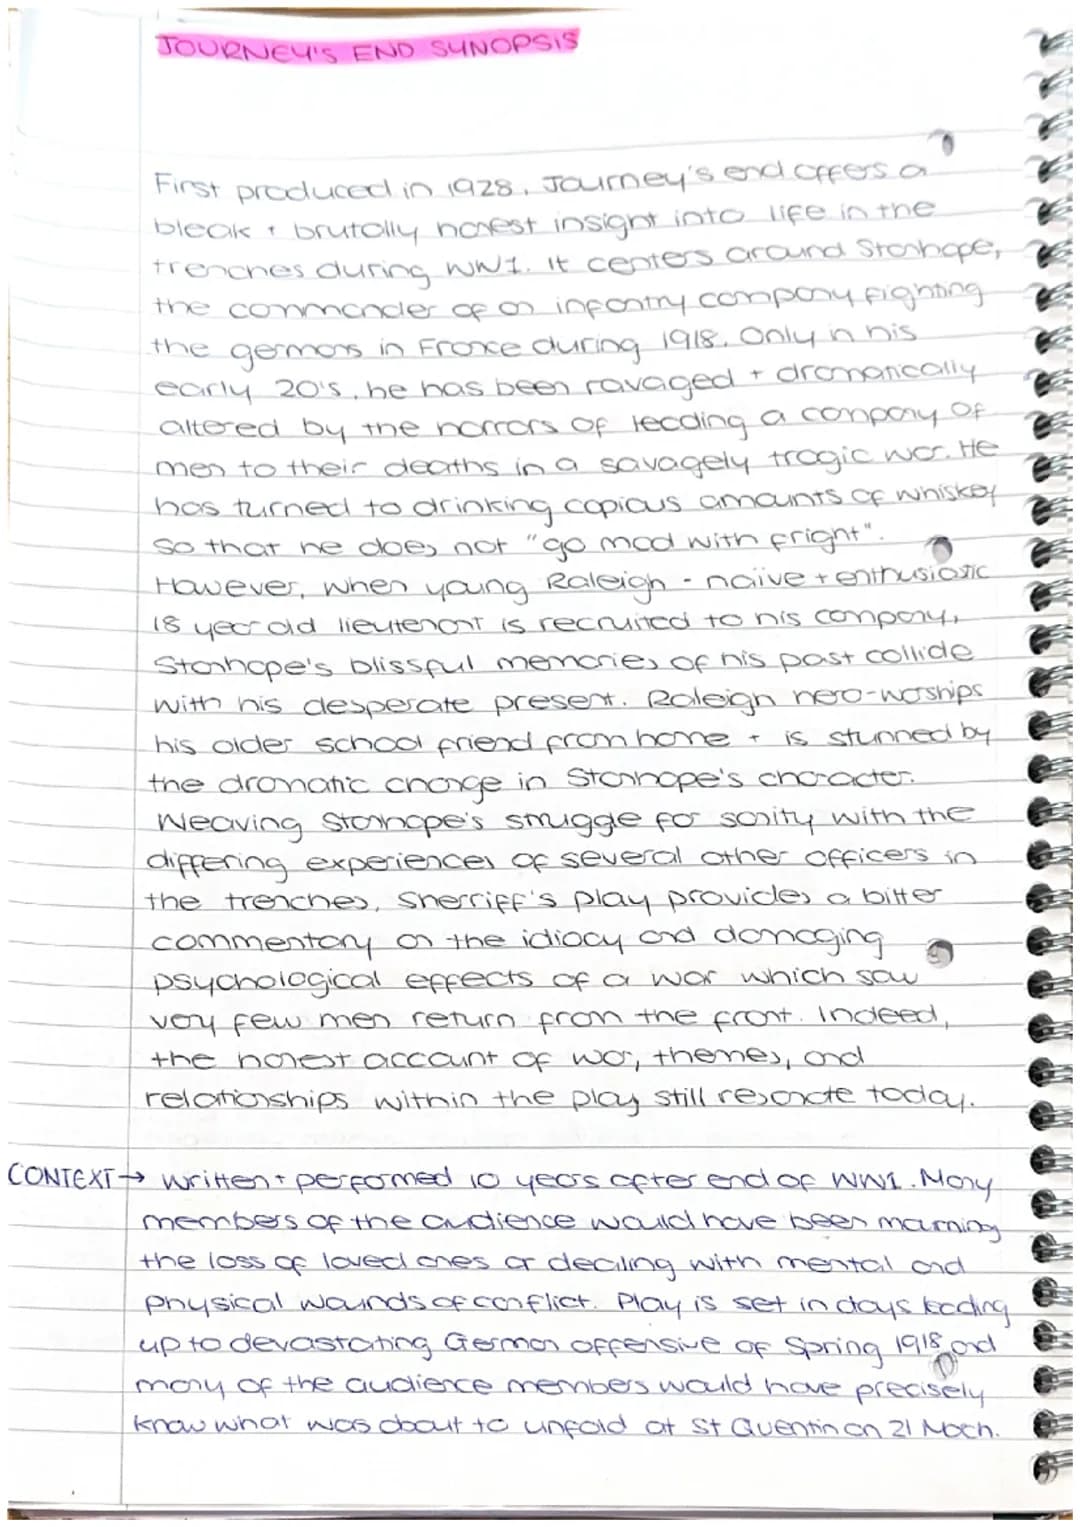 JOURNEY'S END SYNOPSIS
First produced in 1928, Journey's end offers a
bleak + brutally honest insight into life in the
trenches during WW1. It centers around Stanhope,
the commander of an infantry company fighting
the germans in France during 1918. Only in his
early 20's, he has been ravaged + dramatically
altered by the horrors of leading a company of
men to their deaths in a savagely tragic war. He
has turned to drinking copious amounts of whiskey
so that he does not "go mad with fright".
However, when young Raleigh - naive + enthusiastic
18 year old lieutenant is recruited to his company,
Stanhope's blissful memories of his past collide
with his desperate present. Raleigh hero-worships
his older school friend from home + is stunned by
the dramatic change in Stanhope's character.
Weaving Stanhope's struggle for sanity with the
differing experiences of several other officers in
the trenches, Sherriff's play provides a bitter
commentary on the idiocy and damaging
psychological effects of a war which saw
very few men return from the front. Indeed,
the honest account of war, themes, and
relationships within the play still resonate today.
CONTEXT → written + performed 10 years after end of WW1. Many
members of the audience would have been mourning
the loss of loved ones or dealing with mental and
physical wounds of conflict. Play is set in days leading
up to devastating German offensive of Spring 1918 and
many of the audience members would have precisely
know what was about to unfold at St Quentin on 21 March.